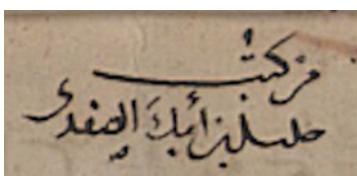 من كتب
خليل بن أيبك الصفدي